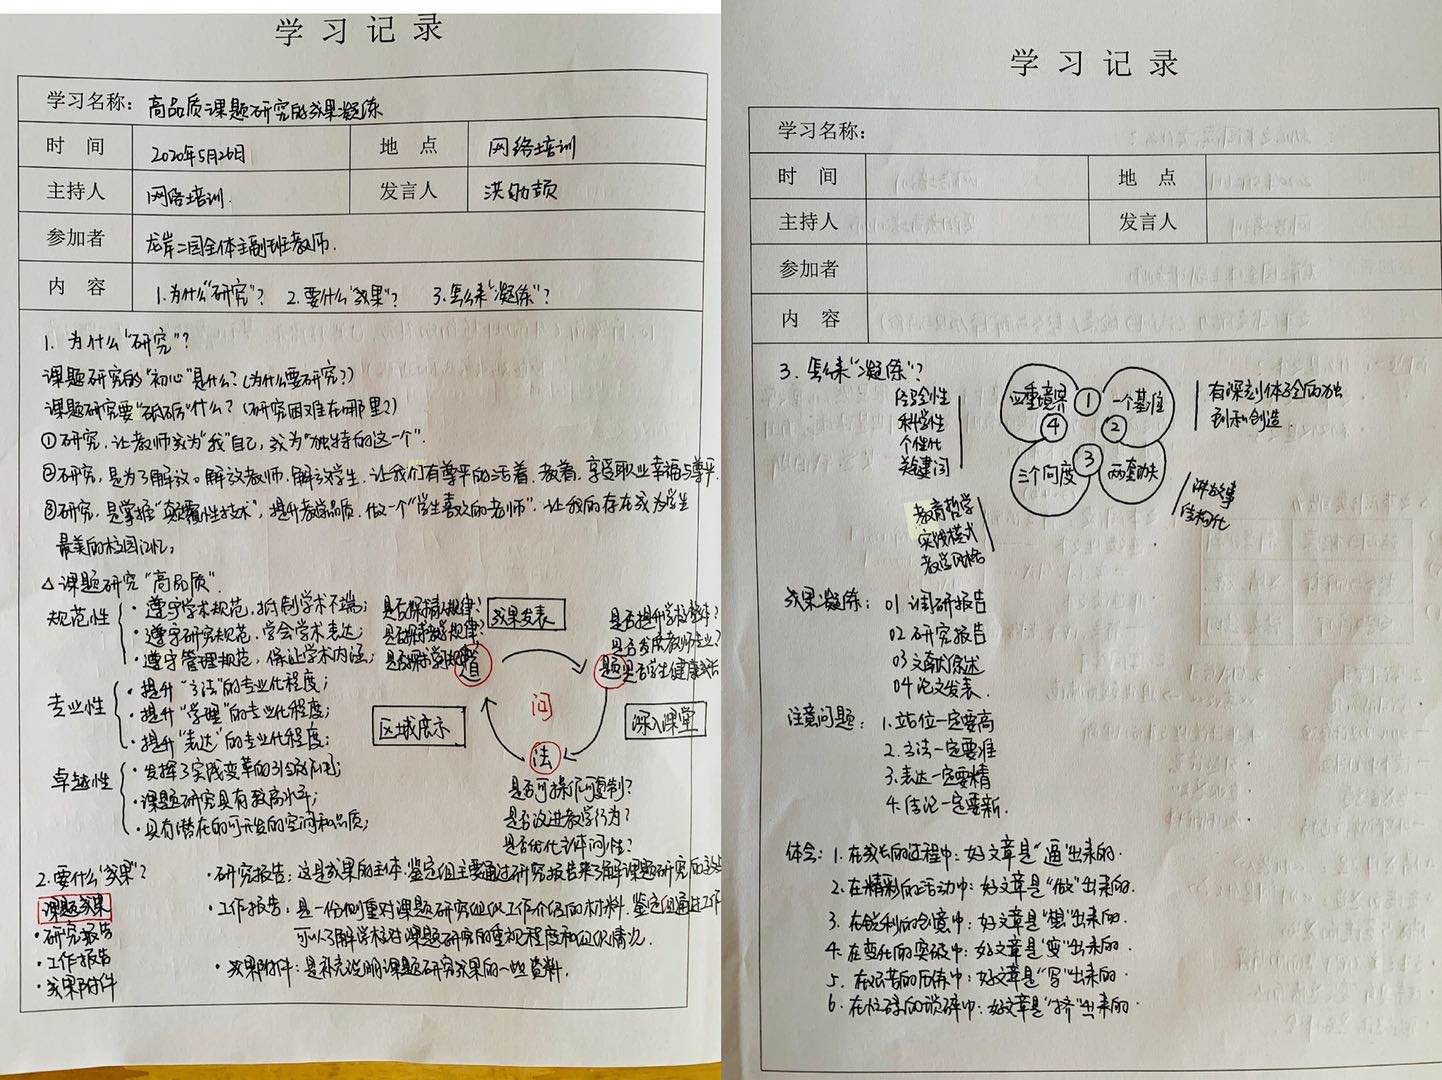 学习记录
学习名称：高品质课题研究的成果凝练
时 间 2020年5月26日 地 点 网络培训
主持人 网络培训. 发言人
参加者 龙岸二园全体主副班教师.
内 容 1.为什么“研究”? 2.要什么“成果”? 3.怎么来“凝练”?
1. 为什么“研究”?
课题研究的“初心”是什么?(为什么要研究?)
课题研究要“砥砺”什么?(研究困难在哪里?)
①研究，让教师成为“我”自己，成为“独特的这一个”.
②研究，是为了解放。解放教师，解放学生，让我们有尊严的活着、教着，享受职业幸福与尊严.
③研究，是掌握“颠覆性技术”，提升教学品质，做一个“学生喜欢的老师”，让我的存在成为学生
最美的校园记忆。
△课题研究“高品质”.
规范性
·遵守学术规范，抵制学术不端；
·遵守研究规范，学会学术表达；
·遵守管理规范，保证学术内涵；
专业性
·提升“方法”的专业化程度；
·提升“学理”的专业化程度；
·提升“表达”的专业化程度；
卓越性
·发挥了实践变革的引领作用；
·课题研究具有较高水平；
·具有潜在的可开发的空间和品质；
成果发表
道
是否提升学校整体?
是否发展教师专业?
题 是否学生健康成长
问
区域展示
深入课堂
法
是否可操作可复制?
是否改进教学行为?
是否优化主体间性?
2.要什么“成果”?
课题成果
·研究报告
·工作报告
·成果附件
·研究报告：这是成果的主体，鉴定组主要通过研究报告来了解课题研究的
·工作报告：是一份侧重对课题研究组织工作介绍的材料，鉴定组通过工作
可以了解学校对课题研究的重视程度和组织情况.
·成果附件：是补充说明课题研究成果的一些资料.
学习记录
学习名称：
时 间 地 点
主持人 发言人
参加者
内 容
3. 怎么来“凝练”?
经验性
科学性
个性化
关键词
四重境界 ① 一个基准
④ ②
三个向度 ③ 两套功夫
有深刻体验的独
到和创造.
讲故事
结构化
教育哲学
实践模式
教学风格
成果凝练：01 调研报告
02 研究报告
03 文献综述
04 论文发表.
注意问题：1.站位一定要高
2.方法一定要准
3.表达一定要精
4.结论一定要新.
体会：1.在成长的过程中：好文章是“逼”出来的.
2.在精彩的活动中：好文章是“做”出来的.
3.在锐利的创意中：好文章是“想”出来的.
4.在变化的突破中：好文章是“变”出来的.
5.在艰苦的历练中：好文章是“写”出来的
6.在忙碌的琐碎中：好文章是“挤”出来的.